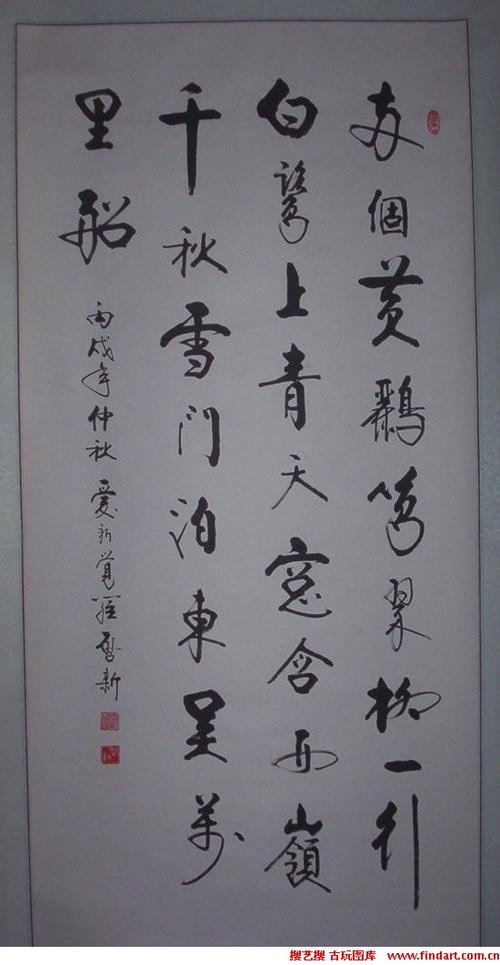 兩個黃鸝鳴翠柳一行
白鷺上青天窓含西嶺
千秋雪門泊東吳萬
里船
丙戌年仲秋 愛新覺羅啓新
搜艺搜 古玩图库 www.findart.com.cn